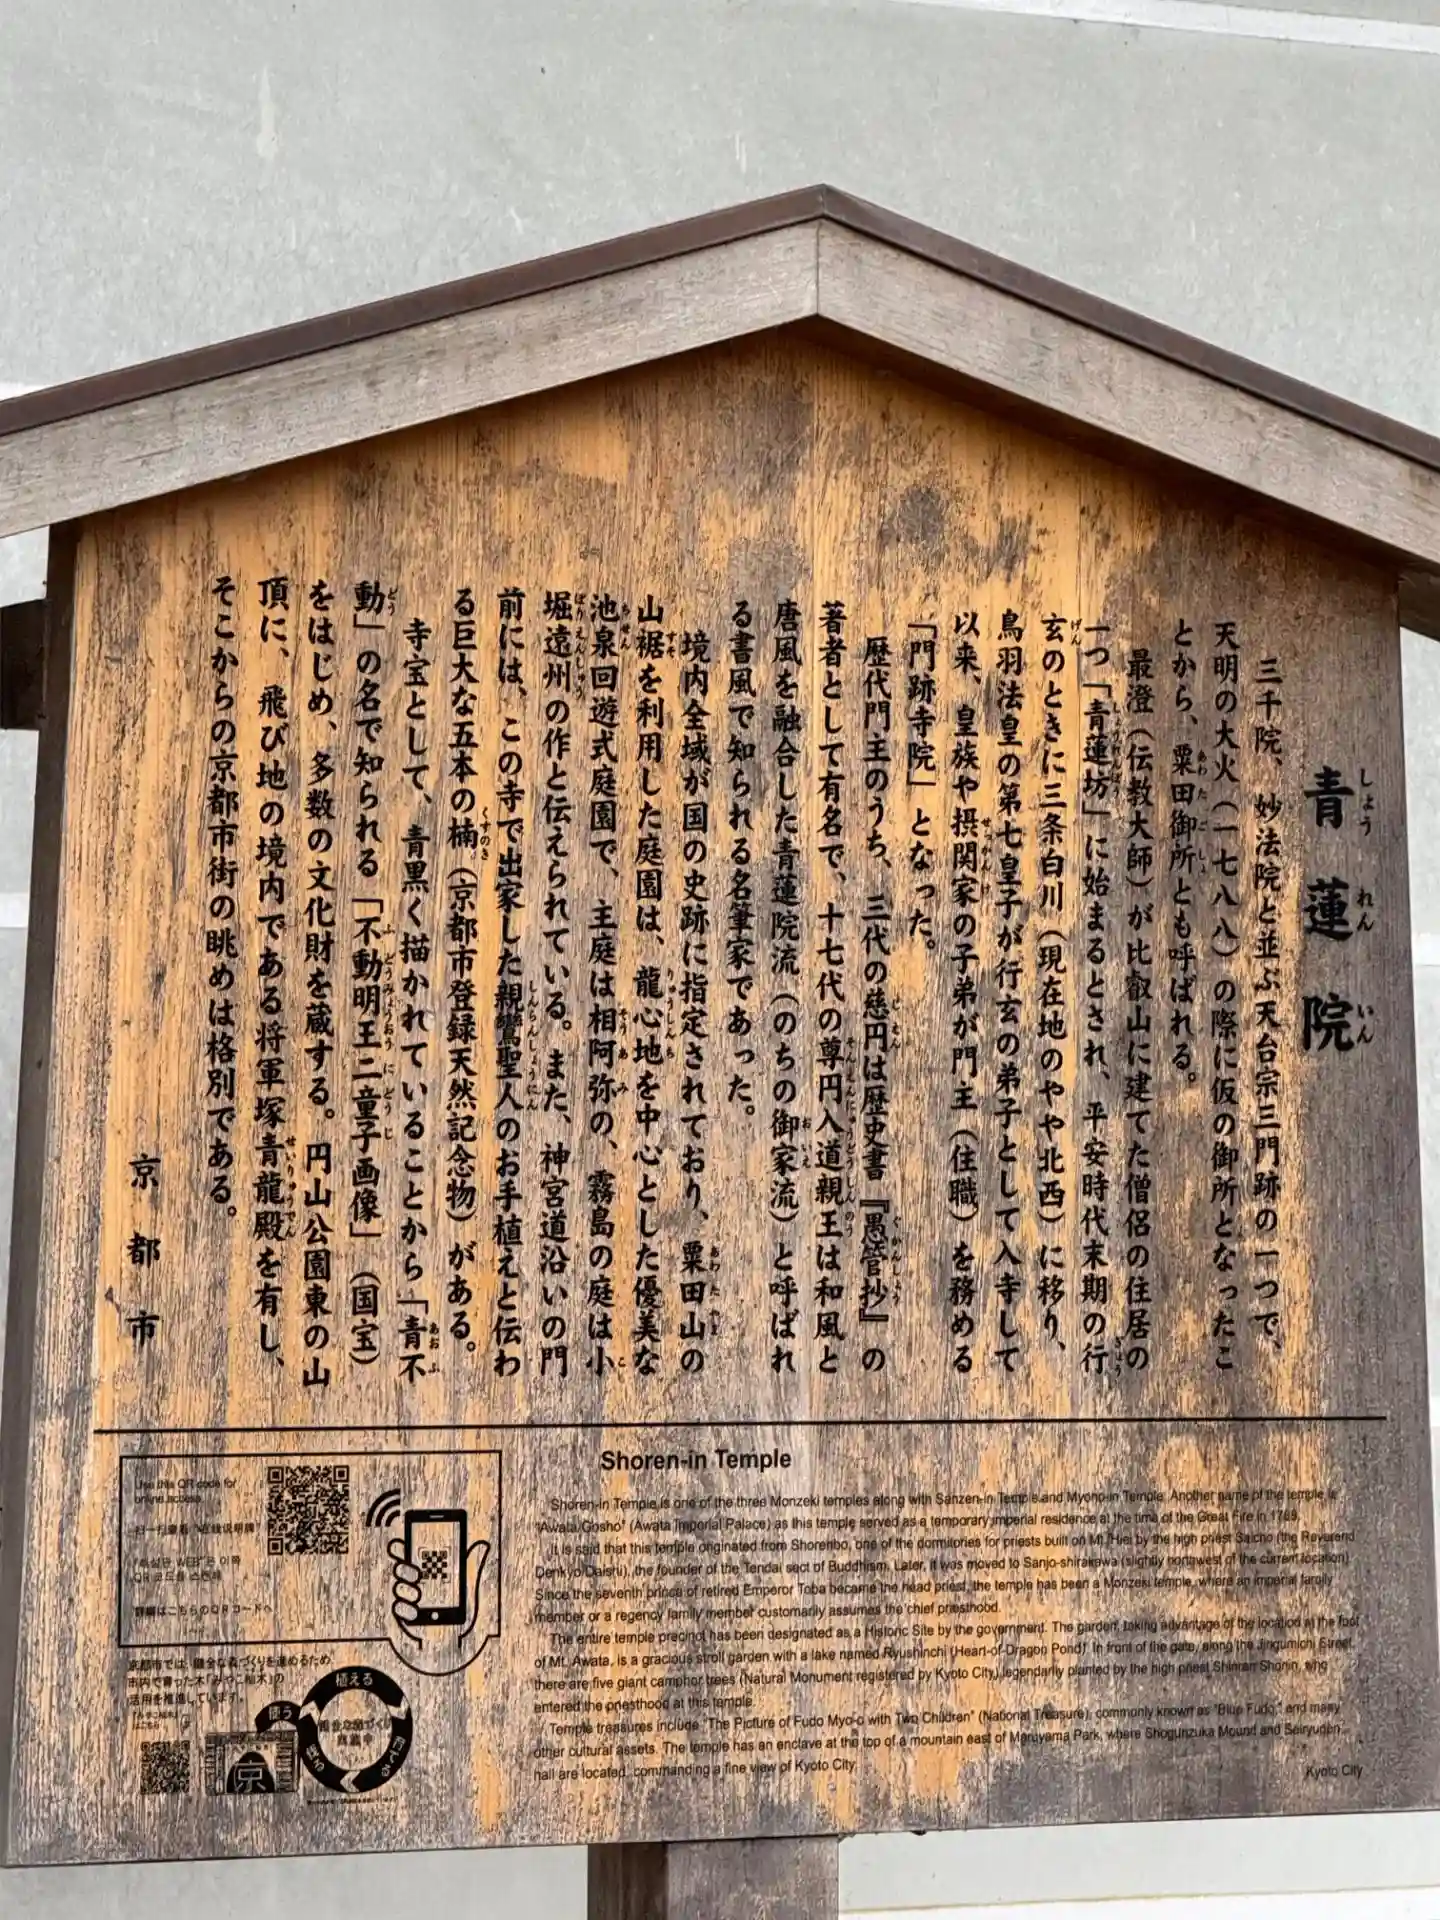 青蓮院
三千院、妙法院と並ぶ天台宗三門跡の一つで、
天明の大火（一七八八）の際に仮の御所となったこ
とから、粟田御所とも呼ばれる。
最澄（伝教大師）が比叡山に建てた僧侶の住居の
一つ「青蓮坊」に始まるとされ、平安時代末期の行
玄のときに三条白川（現在地のやや北西）に移り、
鳥羽法皇の第七皇子が行玄の弟子として入寺して
以来、皇族や摂関家の子弟が門主（住職）を務める
「門跡寺院」となった。
歴代門主のうち、三代の慈円は歴史書『愚管抄』の
著者として有名で、十七代の尊円入道親王は和風と
唐風を融合した青蓮院流（のちの御家流）と呼ばれ
る書風で知られる名筆家であった。
境内全域が国の史跡に指定されており、粟田山の
山裾を利用した庭園は、龍心地を中心とした優美な
池泉回遊式庭園で、主庭は相阿弥の、霧島の庭は小
堀遠州の作と伝えられている。また、神宮道沿いの門
前には、この寺で出家した親鸞聖人のお手植えと伝わ
る巨大な五本の楠（京都市登録天然記念物）がある。
寺宝として、青黒く描かれていることから「青不
動」の名で知られる「不動明王二童子画像」（国宝）
をはじめ、多数の文化財を蔵する。円山公園東の山
頂に、飛び地の境内である将軍塚青龍殿を有し、
そこからの京都市街の眺めは格別である。
京都市
Shoren-in Temple
Shoren-in Temple is one of the three Monzeki temples along with Sanzen-in Temple and Myoho-in Temple. Another name of the temple is
"Awata Gosho" (Awata Imperial Palace) as this temple served as a temporary imperial residence at the time of the Great Fire in 1788.
It is said that this temple originated from Shorenbo, one of the dormitories for priests built on Mt. Hiei by the high priest Saicho (the Reverend
Denkyo Daishi), the founder of the Tendai sect of Buddhism. Later, it was moved to Sanjo-shirakawa (slightly northwest of the current location).
Since the seventh prince of retired Emperor Toba became the head priest, the temple has been a Monzeki temple, where an imperial family
member or a regency family member customarily assumes the chief priesthood.
The entire temple precinct has been designated as a Historic Site by the government. The garden, taking advantage of the location at the foot
of Mt. Awata, is a gracious stroll garden with a lake named Ryushinchi (Heart-of-Dragon Pond). In front of the gate, along the Jingumichi Street,
there are five giant camphor trees (Natural Monument registered by Kyoto City) legendarily planted by the high priest Shinran Shonin, who
entered the priesthood at this temple.
Temple treasures include "The Picture of Fudo Myo-o with Two Children" (National Treasure), commonly known as "Blue Fudo," and many
other cultural assets. The temple has an enclave at the top of a mountain east of Maruyama Park, where Shogunzuka Mound and Seiryuden
hall are located, commanding a fine view of Kyoto City.
Kyoto City
Use this QR code for
online access.
QR 코드를
詳細はこちらのQRコードへ
京都市では、健全な森づくりを進めるため、
市内で育った木「みやこ杣木」の
活用を推進しています。
植える
使う
京